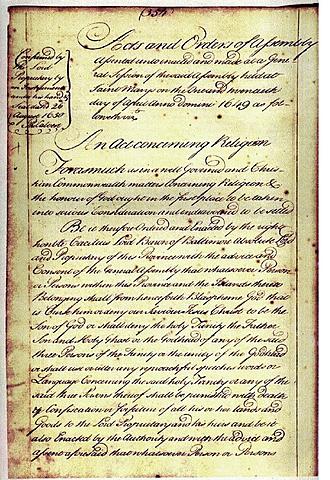 (354)
Confirmed by
the Lord
Proprietary by
an Instrument
under his hand &
Seal the 26
August 1650
P Hatton
Acts and Orders of Assembly
assented unto enacted and made at a Gene
ral Session of the said Assembly held at
Saint Marys on the one and twentieth
day of Aprill Anno Domini 1649 as fol
loweth viz
An Act concerning Religion
Forasmuch as in a well Governed and Chris
tian Commonwealth matters concerning Religion &
the honour of God ought in the first place to be taken
into serious Consideration and endeavoured to be settled
Be it therefore Ordered and Enacted by the right
honble Cecilius Lord Baron of Baltimore absolute Lord
and Proprietary of this Province with the advice and
Consent of this General Assembly that whatsoever Person
or Persons within this Province and the Islands thereto
Belonging shall from henceforth Blaspheme God that
is Curse him or deny our Saviour Jesus Christ to be the
Son of God or shall deny the holy Trinity the Father
Son And Holy Ghost or the Godhead of any of the said
three Persons of the Trinity or the unity of the Godhead
or shall use or utter any reproachful speeches words or
Language Concerning the said holy Trinity or any of the
said three Persons thereof shall be punished with Death
& Confiscation or forfeiture of all his or her lands and
Goods to the Lord Proprietary and his heirs and be it
also Enacted by the Authority and with the advice and
assent aforesaid that whatsoever Person or Persons